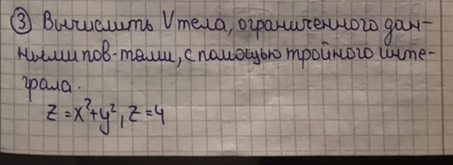 ③ Вычислить V тела, ограниченного дан-
ными пов-тями, с помощью тройного инте-
грала.
z = x² + y², z = 4